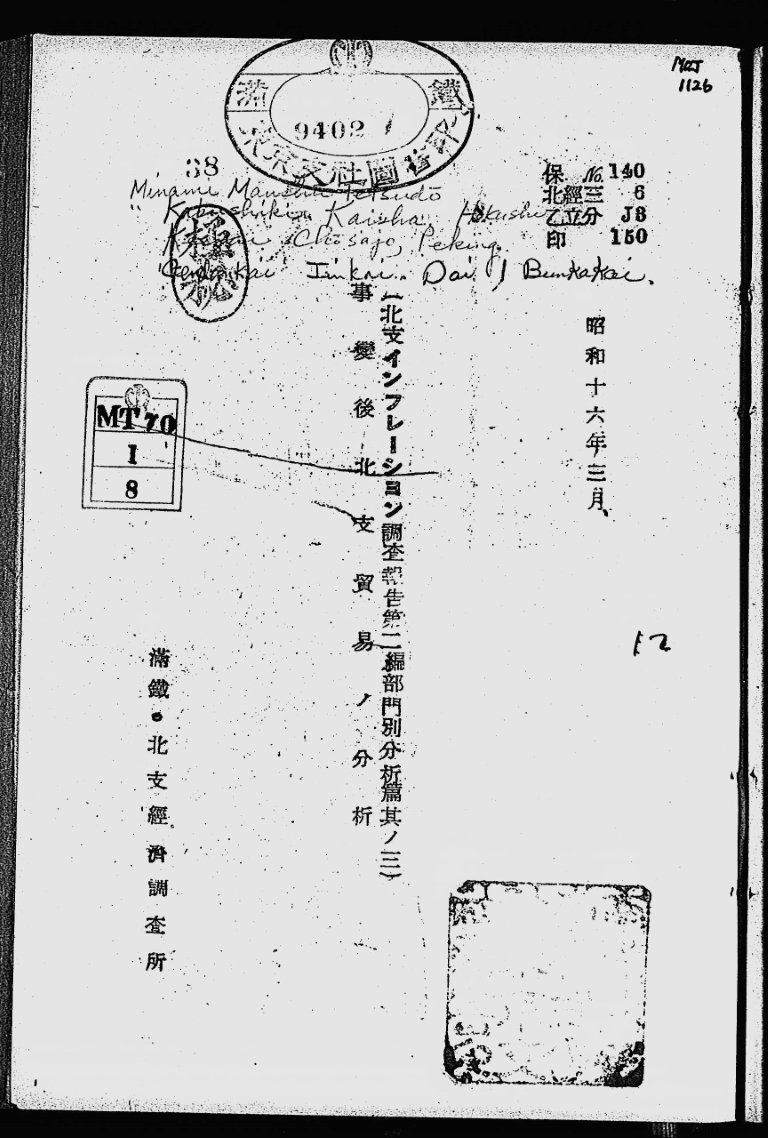 MOJ
1126
滿鐵
9402 1
東京支社圖書印
38
Minami Manshu Tetsudō
Kabushiki Kaisha. Hokushi
Keizai Chōsajo, Peking.
Iinkai. Dai 1 Bunkakai.
極祕
保 No. 140
北經三 6
乙立分 J3
印 150
昭和十六年三月
(北支インフレーション調查報吿第二編部門別分析篇其ノ三)
事變後北支貿易ノ分析
12
MT 70
I
8
滿鐵・北支經濟調查所